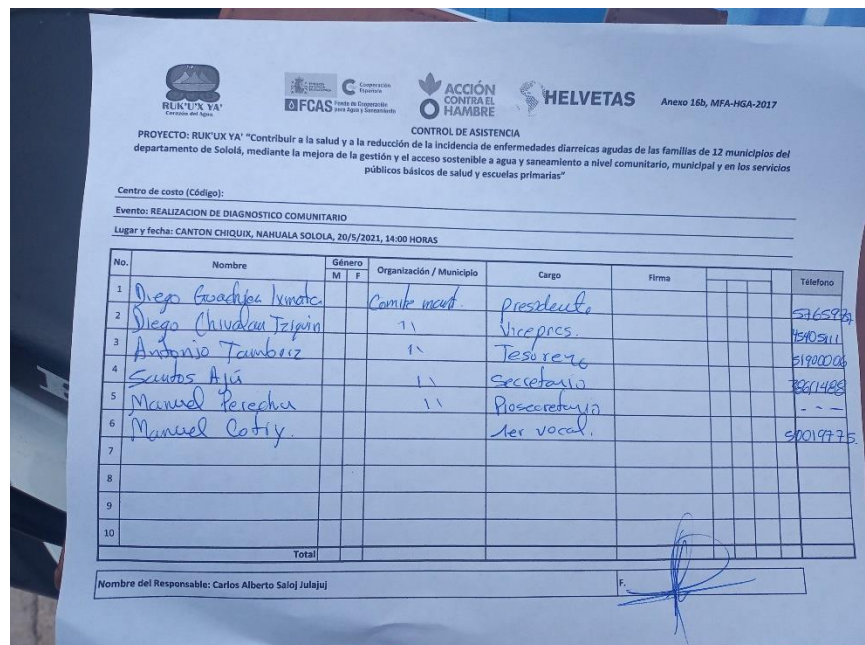 RUK'U'X YA'
Corazón del Agua
Cooperación Española
FCAS Fondo de Cooperación para Agua y Saneamiento
ACCIÓN CONTRA EL HAMBRE
HELVETAS
Anexo 16b, MFA-HGA-2017
CONTROL DE ASISTENCIA
PROYECTO: RUK'UX YA' "Contribuir a la salud y a la reducción de la incidencia de enfermedades diarreicas agudas de las familias de 12 municipios del
departamento de Sololá, mediante la mejora de la gestión y el acceso sostenible a agua y saneamiento a nivel comunitario, municipal y en los servicios
públicos básicos de salud y escuelas primarias"
Centro de costo (Código):
Evento: REALIZACION DE DIAGNOSTICO COMUNITARIO
Lugar y fecha: CANTON CHIQUIX, NAHUALA SOLOLA, 20/5/2021, 14:00 HORAS
No. Nombre Género M F Organización / Municipio Cargo Firma Télefono
1 Diego Comite presidente
2 Diego Tziquin 11 Vicepres. 45405111
3 Antonio Tambriz 11 Tesorero 51900006
4 Santos Ajú 11 Secretario
5 Manuel 11 Prosecretario - - -
6 Manuel Cotiy. 1er vocal. 50019775
7
8
9
10
Total
Nombre del Responsable: Carlos Alberto Saloj Julajuj F.